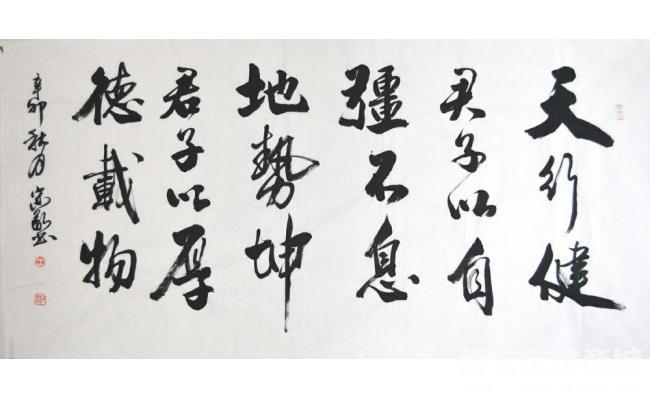 天行健
君子以自
彊不息
地勢坤
君子以厚
德載物
辛卯秋月